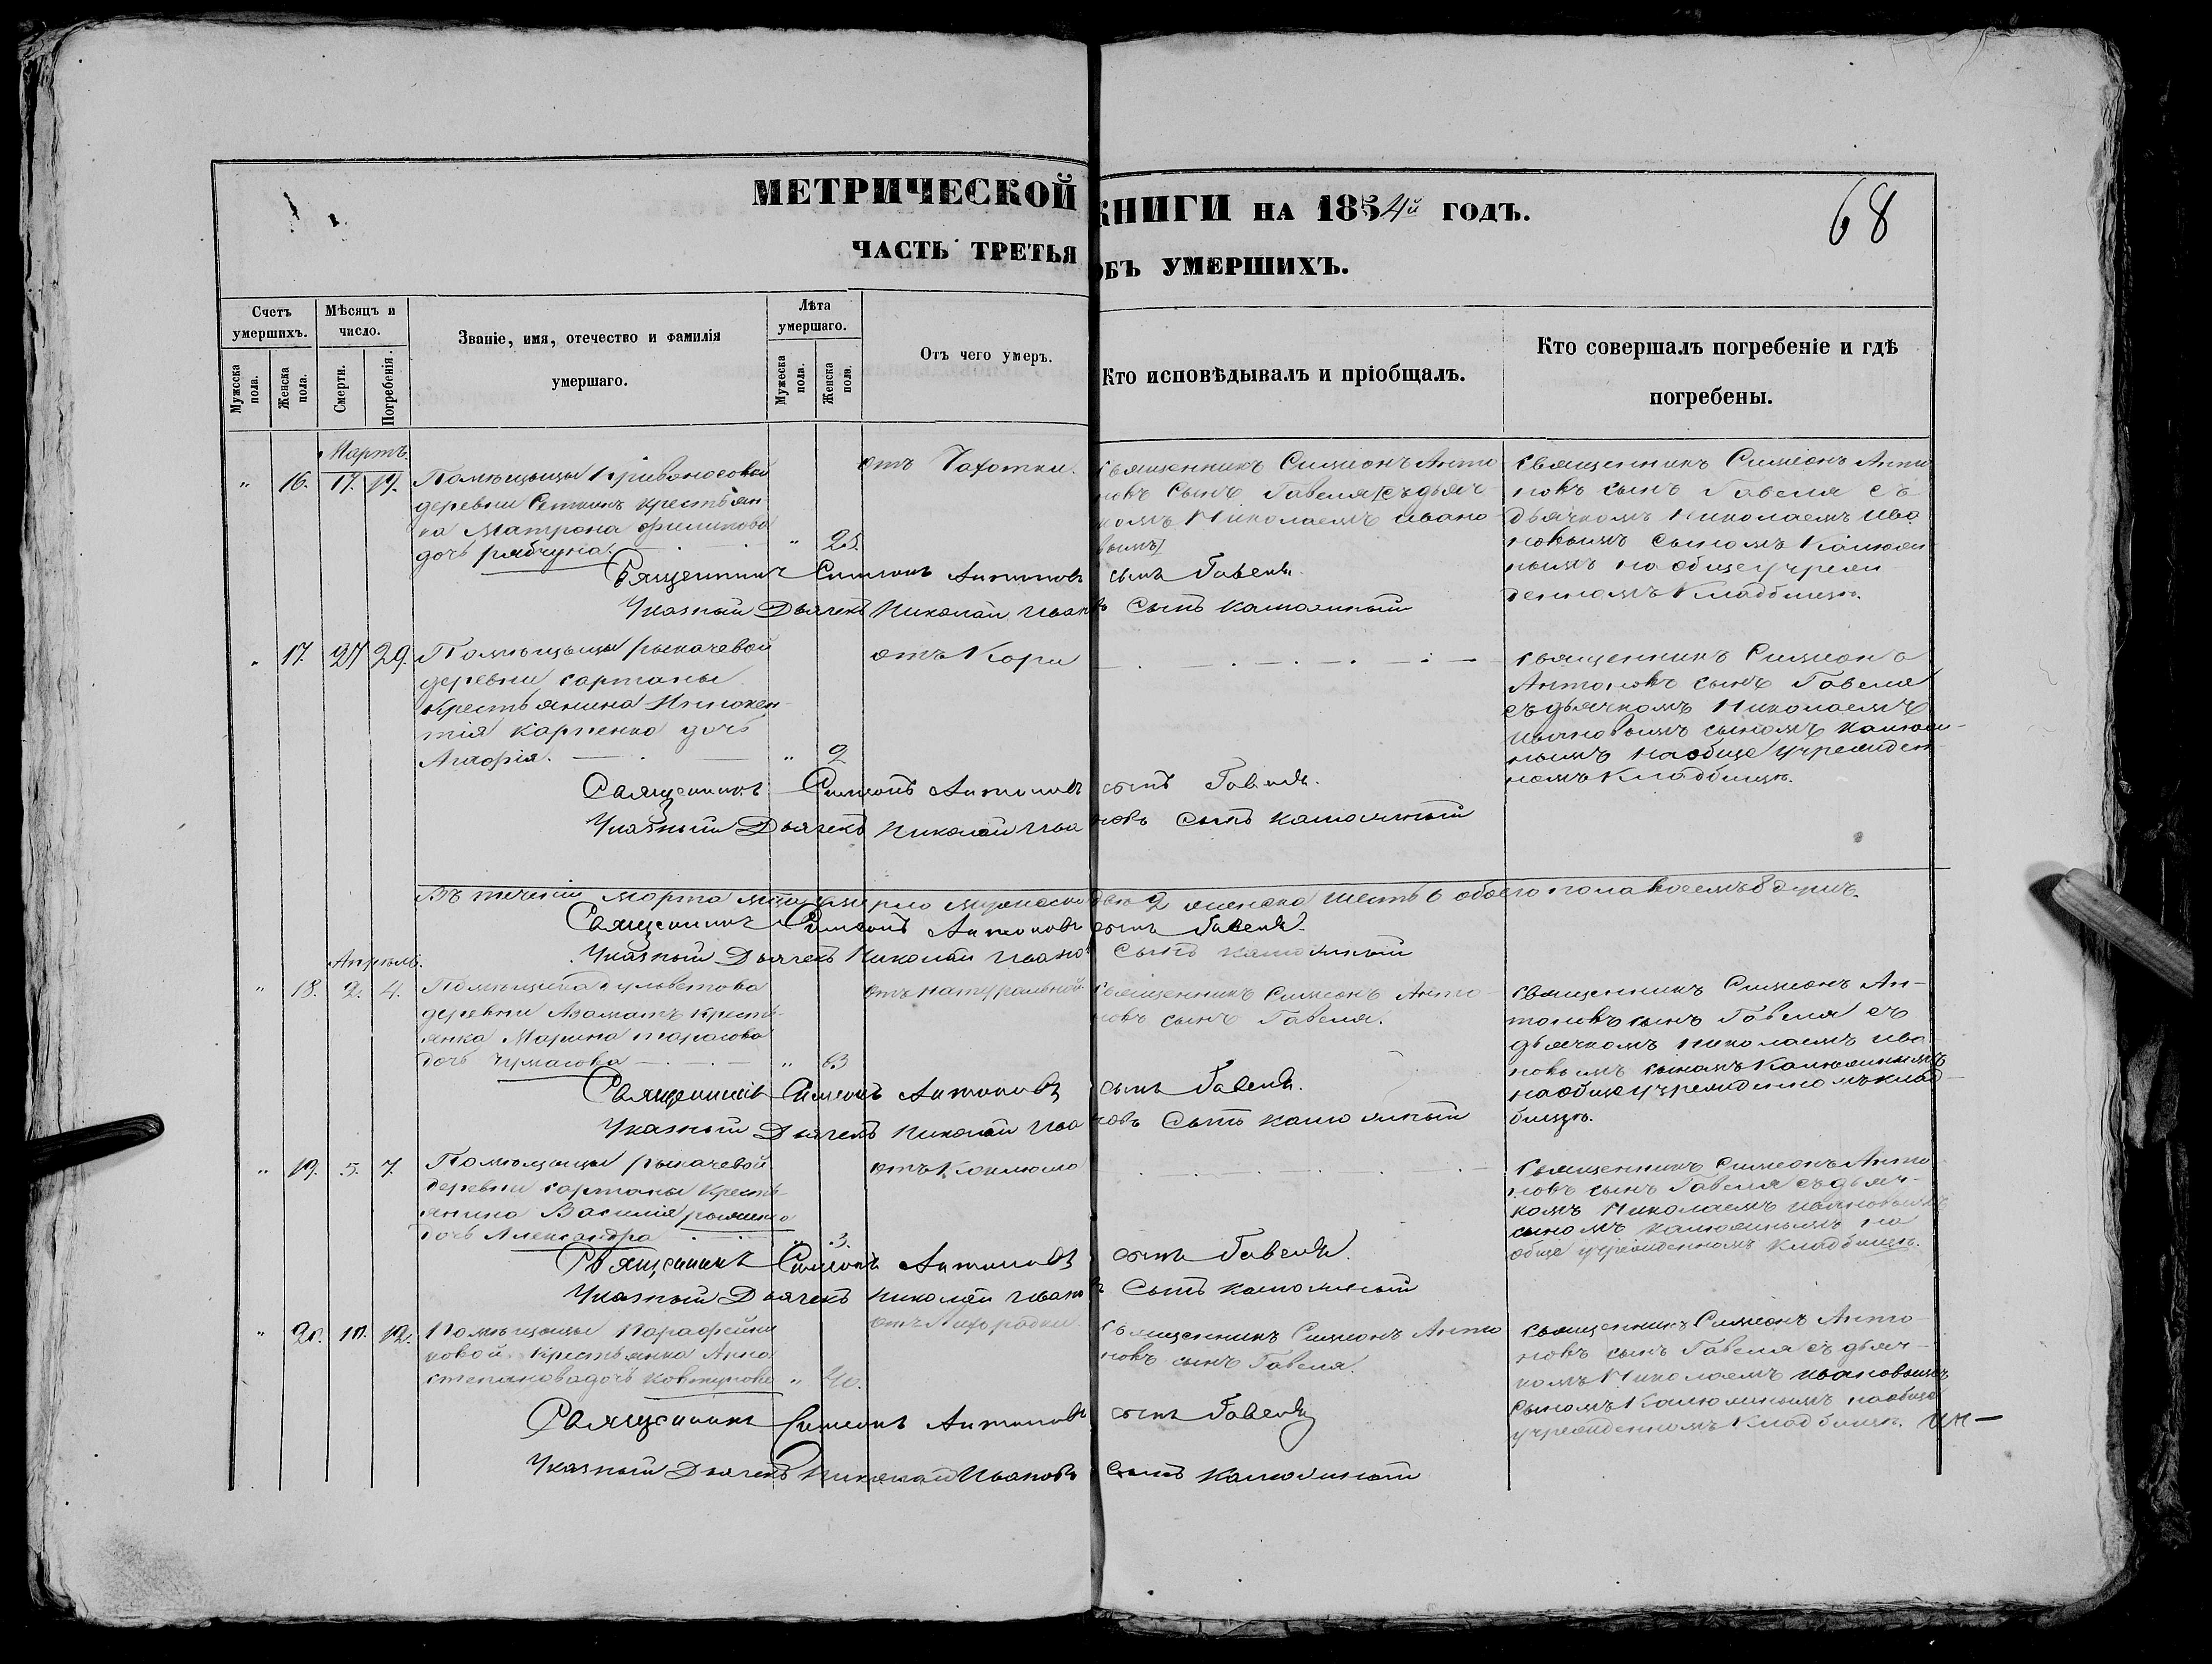 МЕТРИЧЕСКОЙ КНИГИ НА 1854й ГОДЪ.
68
ЧАСТЬ ТРЕТЬЯ ОБЪ УМЕРШИХЪ.
Счетъ умершихъ.
Мужеска пола.
Женска пола.
Мѣсяцъ и число.
Смерти.
Погребенія.
Званіе, имя, отечество и фамилія умершаго.
Лѣта умершаго.
Мужеска пола.
Женска пола.
Отъ чего умеръ.
Кто исповѣдывалъ и пріобщалъ.
Кто совершалъ погребеніе и гдѣ погребены.
Мартъ.
" 16. 17. 19.
Помѣщицы Кривоносовой
деревни крестьян-
ка Матрона Филипова
дочь рябчуна.
" 25.
отъ Чахотки.
священникъ Симеонъ Анто
новъ сынъ Гавеля съ дьяч
комъ Николаемъ Ивано
вымъ
священникъ Симеонъ Анто
новъ сынъ Гавеля съ
дьячкомъ Николаемъ Ива
новымъ сыномъ Калюж
нымъ на обще учреж
денномъ Кладбищѣ.
Священникъ Симеонъ Антоновъ сынъ Гавеля.
Указный Дьячекъ Николай Ивановъ Сынъ Калюжный
" 17. 27 29.
Помѣщицы рыкачевой
деревни сартаны
Крестьянина Инокен-
тія Карпенко дочь
Агафія.
" 2
отъ Кори
священникъ Симеонъ
Антоновъ сынъ Гавеля
съ дьячкомъ Николаемъ
Ивановымъ сыномъ Калюж-
нымъ на обще учрежден
номъ Кладбищѣ.
Священникъ Симеонъ Антоновъ сынъ Гавеля.
Указный Дьячекъ Николай Ивановъ Сынъ Калюжный
Въ теченіи марта умерло мужеска 2 женска шесть 6 обоего пола восемь 8 душъ.
Священникъ Симеонъ Антоновъ сынъ Гавеля.
Указный Дьячекъ Николай Ивановъ Сынъ Калюжный
Апрѣль.
" 18. 2. 4.
Помѣщика
деревни Азаматъ кресть-
янка Марина тарасова
дочь чумакова
" 63
отъ натуральной
священникъ Симеонъ Анто
новъ сынъ Гавеля.
священникъ Симеонъ Ан-
тоновъ сынъ Гавеля съ
дьячкомъ Николаемъ Ива
новымъ сыномъ Калюжнымъ
на обще учрежденномъ клад-
бищѣ.
Священникъ Симеонъ Антоновъ сынъ Гавеля.
Указный Дьячекъ Николай Ивановъ Сынъ Калюжный
" 19. 5. 7.
Помѣщицы рыкачевой
деревни сартаны Кресть-
янина Василія
дочь Александра
" 3.
отъ Коклюша
священникъ Симеонъ Анто
новъ сынъ Гавеля съ дьяч-
комъ Николаемъ Ивановымъ
сыномъ Калюжнымъ на
обще учрежденномъ Кладбищѣ.
Священникъ Симеонъ Антоновъ сынъ Гавеля.
Указный Дьячекъ Николай Ивановъ Сынъ Калюжный
" 20. 10. 12.
Помѣщицы Парафейни
ковой Крестьянка Анна
степанова дочь Ковтунова
" 40.
отъ Лихорадки.
священникъ Симеонъ Анто
новъ сынъ Гавеля.
священникъ Симеонъ Анто-
новъ сынъ Гавеля съ дьяч-
комъ Николаемъ Ивановымъ
сыномъ Калюжнымъ на обще
учрежденномъ Кладбищѣ.
Священникъ Симеонъ Антоновъ сынъ Гавеля
Указный Дьячекъ Николай Ивановъ Сынъ Калюжный